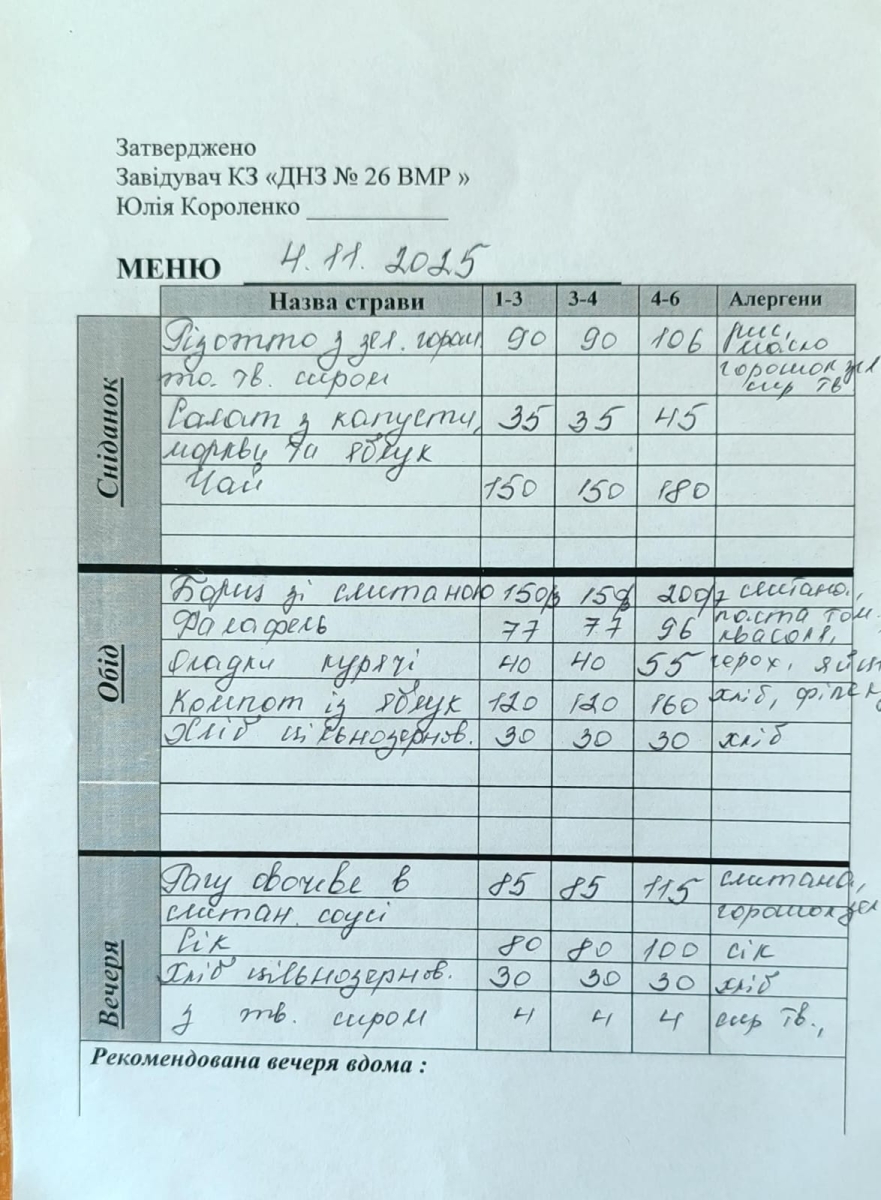 Затверджено
Завідувач КЗ «ДНЗ № 26 ВМР »
Юлія Короленко ____________
МЕНЮ 4.11.2025
Назва страви 1-3 3-4 4-6 Алергени
Сніданок
Різотто з зел. горош. 90 90 106 рис, масло
та тв. сиром горошок зел сир тв
Салат з капусти, 35 35 45
моркви та яблук
Чай 150 150 180
Обід
Борщ зі сметаною 150/ 150/ 200/7 сметана,
Фалафель 77 77 96 паста том. квасоля,
Оладки курячі 40 40 55 горох, яйц
Компот із яблук 120 120 160 хліб, філе
Хліб цільнозернов. 30 30 30 хліб
Вечеря
Рагу овочеве в 85 85 115 сметана,
сметан. соусі горошок зел
Сік 80 80 100 сік
Хліб цільнозернов. 30 30 30 хліб
з тв. сиром 4 4 4 сир тв.,
Рекомендована вечеря вдома :